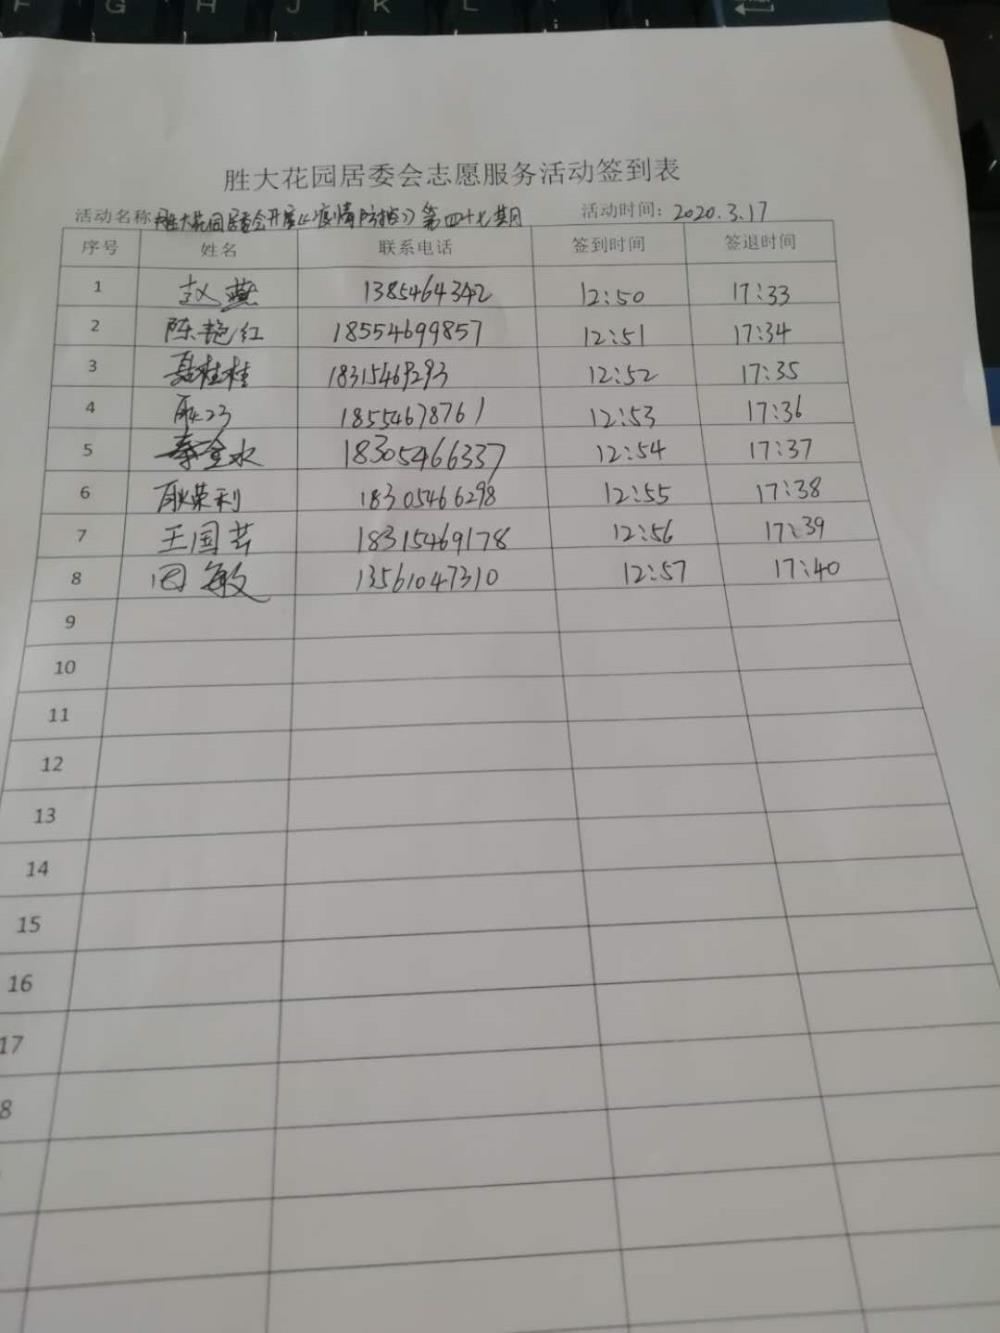 F G H J K L
胜大花园居委会志愿服务活动签到表
活动名称 胜大花园居委会开展《疫情防控》第四十七期 活动时间: 2020.3.17
序号 姓名 联系电话 签到时间 签退时间
1 赵燕 1385464342 12:50 17:33
2 陈艳红 18554699857 12:51 17:34
3 聂桂桂 18315469293 12:52 17:35
4 18554678761 12:53 17:36
5 秦金水 18305466337 12:54 17:37
6 耿荣利 18305466298 12:55 17:38
7 王国芸 18315469178 12:56 17:39
8 田敏 13561047310 12:57 17:40
9
10
11
12
13
14
15
16
17
8